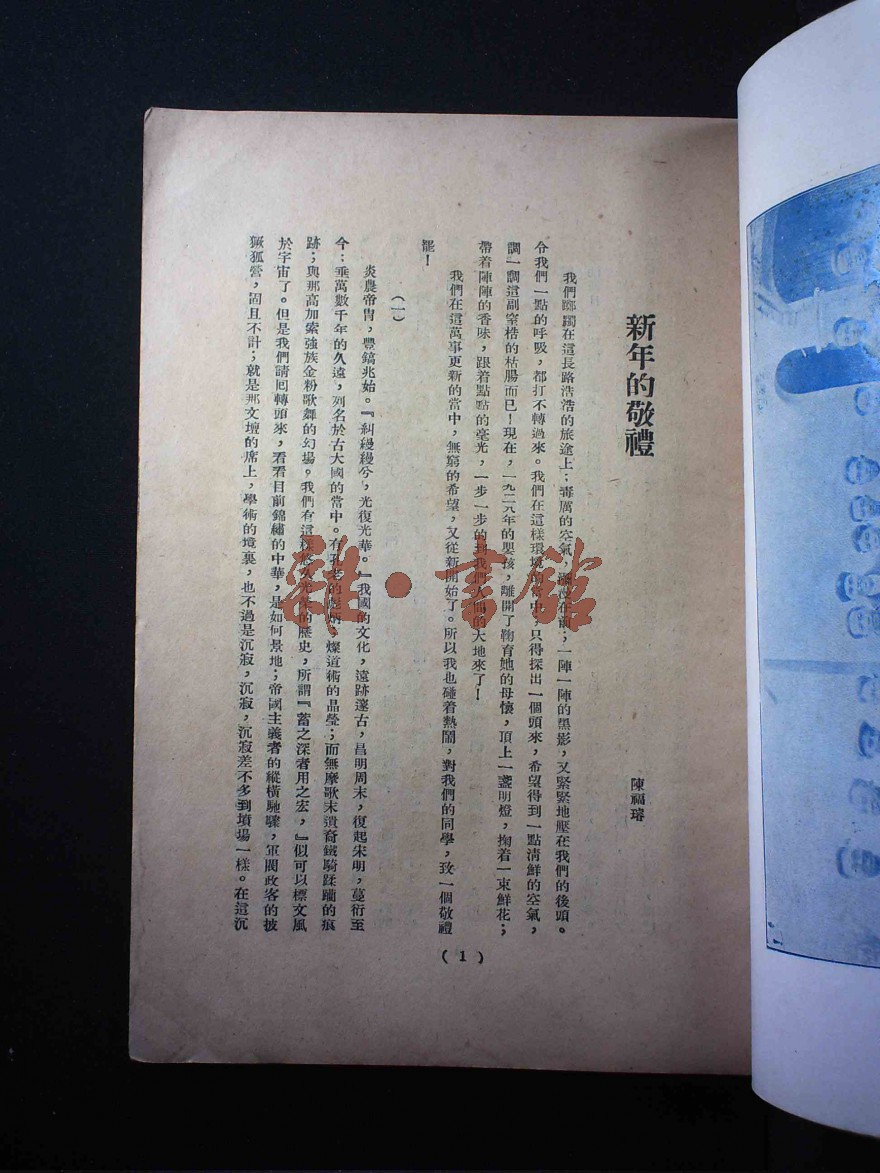 新年的敬禮
陳福璿
我們躑躅在這長路浩浩的旅途上；毒厲的空氣，瀰漫在前；一陣一陣的黑影，又緊緊地壓在我們的後頭。
令我們一點的呼吸，都打不轉過來。我們在這樣環境的當中，只得探出一個頭來，希望得到一點清鮮的空氣，
調一調這副窒梏的枯腸而已！現在，一九二九年的嬰孩，離開了鞠育她的母懷，頂上一盞明燈，掬着一束鮮花；
帶着陣陣的香味，跟着點點的毫光，一步一步的到我們人仙的大地來了！
我們在這萬事更新的當中，無窮的希望，又從新開始了。所以我也碰着熱鬧，對我們的同學，致一個敬禮
罷！
（一）
炎農帝胄，豐鎬兆始。『糾縵縵兮，光復光華。』我國的文化，遠跡邃古，昌明周末，復起宋明，蔓衍至
今：垂萬數千年的久遠，列名於古大國的當中。有孔老的彪炳，燦道術的晶瑩；而無摩歌末遺裔鐵騎蹂躪的痕
跡；與那高加索強族金粉歌舞的幻場。我們有這樣悠久光榮的歷史，所謂『蓄之深者用之宏，』似可以標文風
於宇宙了。但是我們請囘轉頭來，看看目前錦繡的中華，是如何景地；帝國主義者的縱橫馳驟，軍閥政客的披
猖狐營，固且不計；就是那文壇的席上，學術的境裏，也不過是沉寂，沉寂，沉寂差不多到墳場一樣。在這沉
（1）
雜·書館